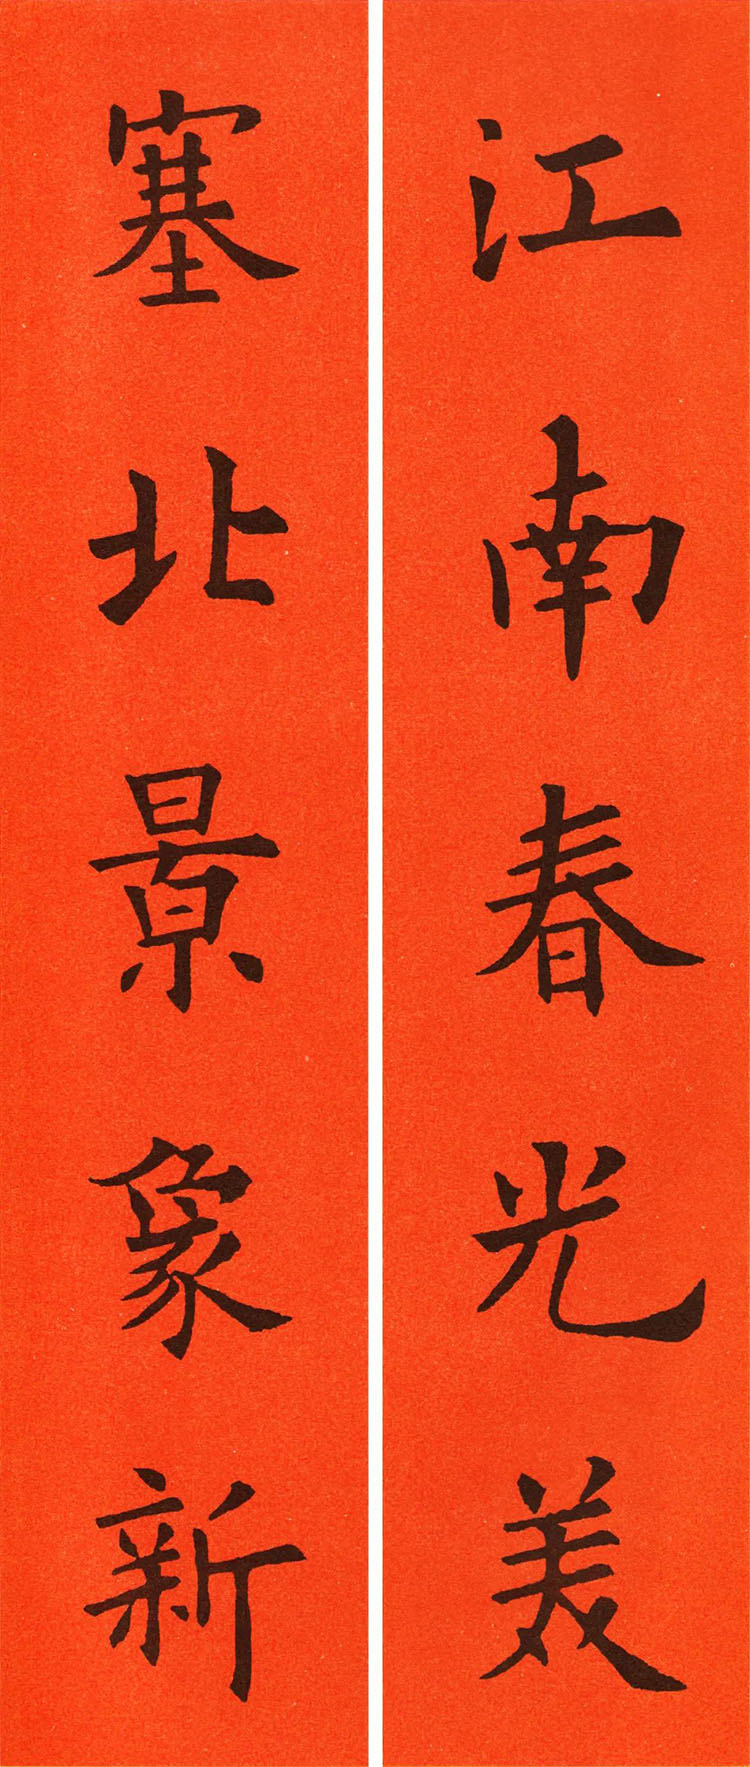 江南春光美
塞北景象新